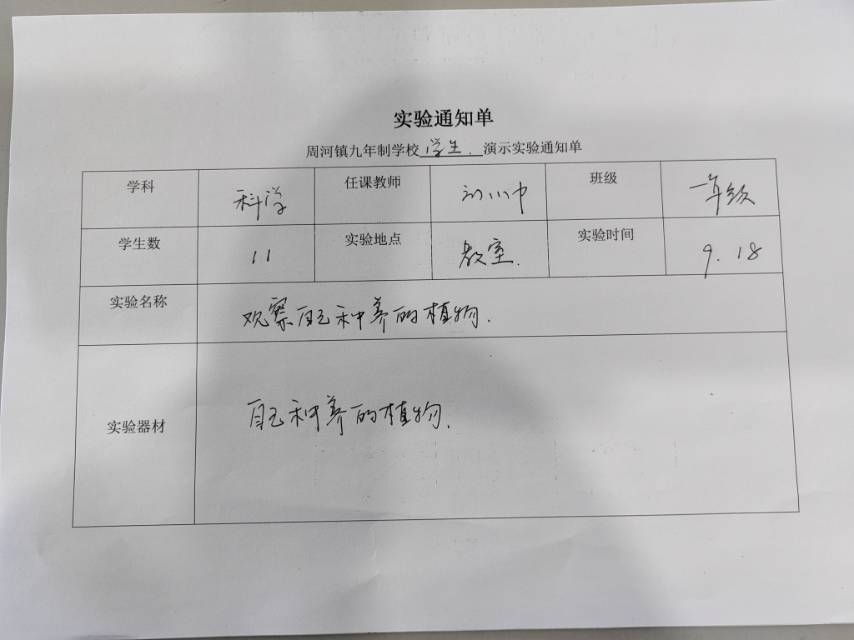 实验通知单
周河镇九年制学校学生.演示实验通知单
学科 科学 任课教师 班级 一年级
学生数 11 实验地点 教室. 实验时间 9.18
实验名称 观察自己种养的植物.
实验器材 自己种养的植物.